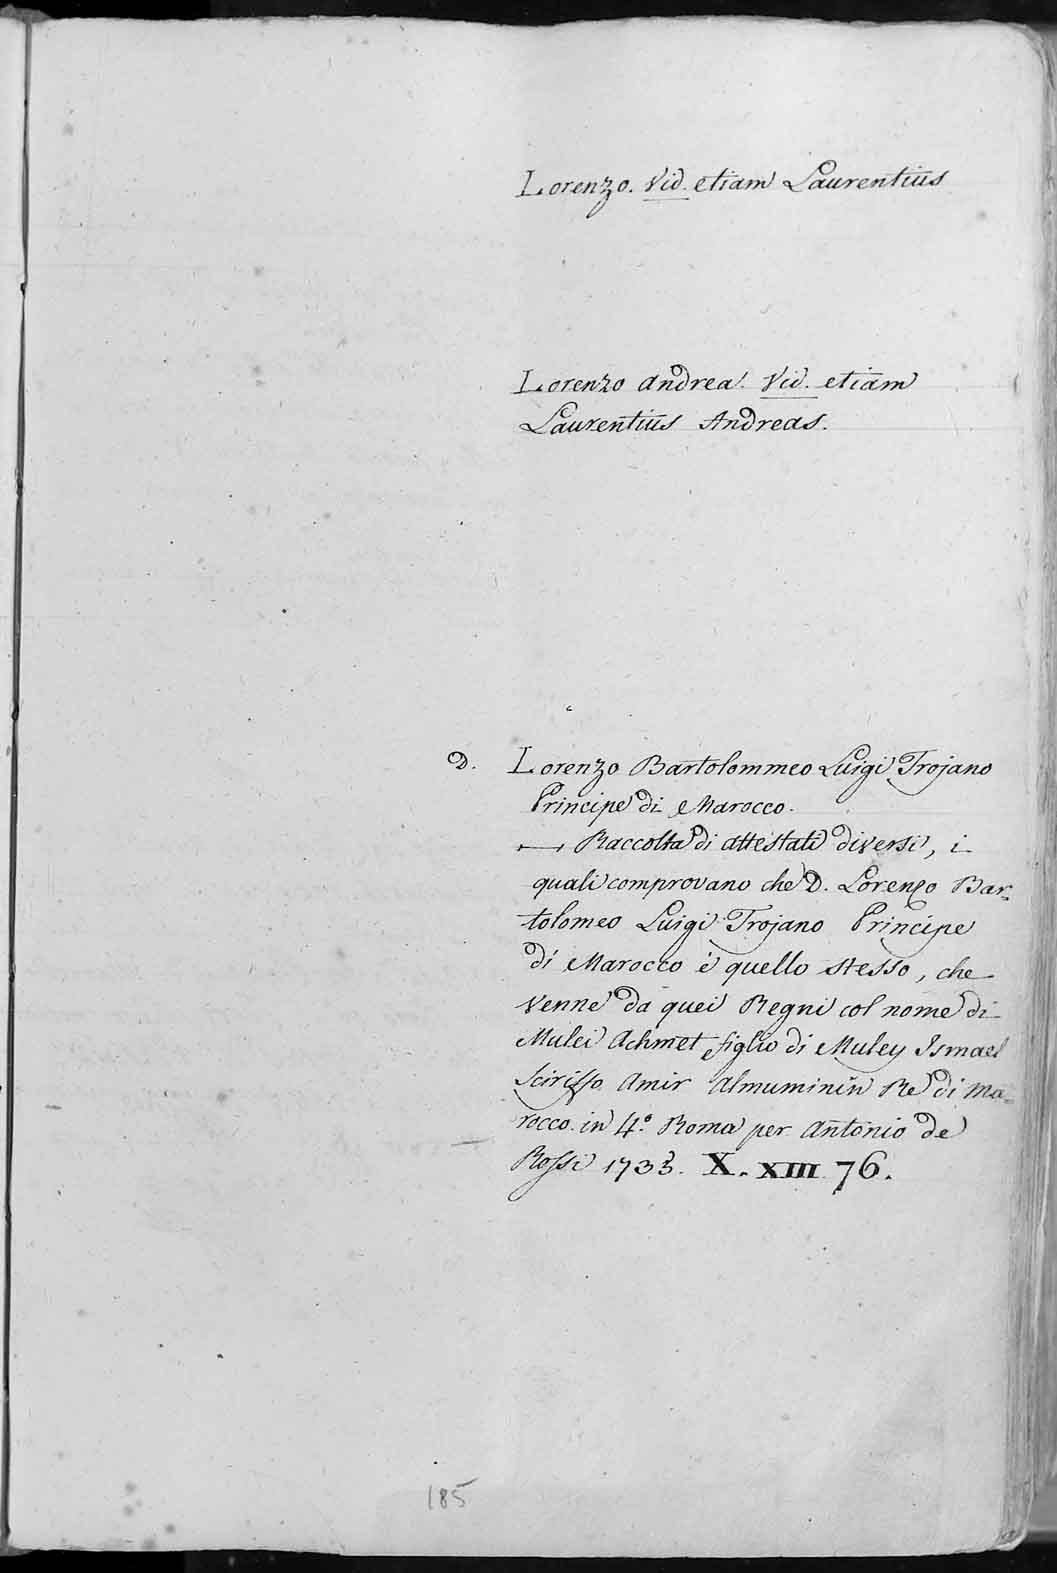 Lorenzo. Vid. etiam Laurentius
Lorenzo Andrea. Vid. etiam
Laurentius Andreas.
D. Lorenzo Bartolommeo Luigi Trojano
Principe di Marocco.
— Raccolta di attestati diversi, i
quali comprovano che D. Lorenzo Bar-
tolomeo Luigi Trojano Principe
di Marocco è quello stesso, che
venne da quei Regni col nome di
Mulei Achmet figlio di Muley Ismael
Sciriffo Amir Almuminin Re di Ma-
rocco. in 4.º Roma per Antonio de
Rossi X. XIII 76.
185